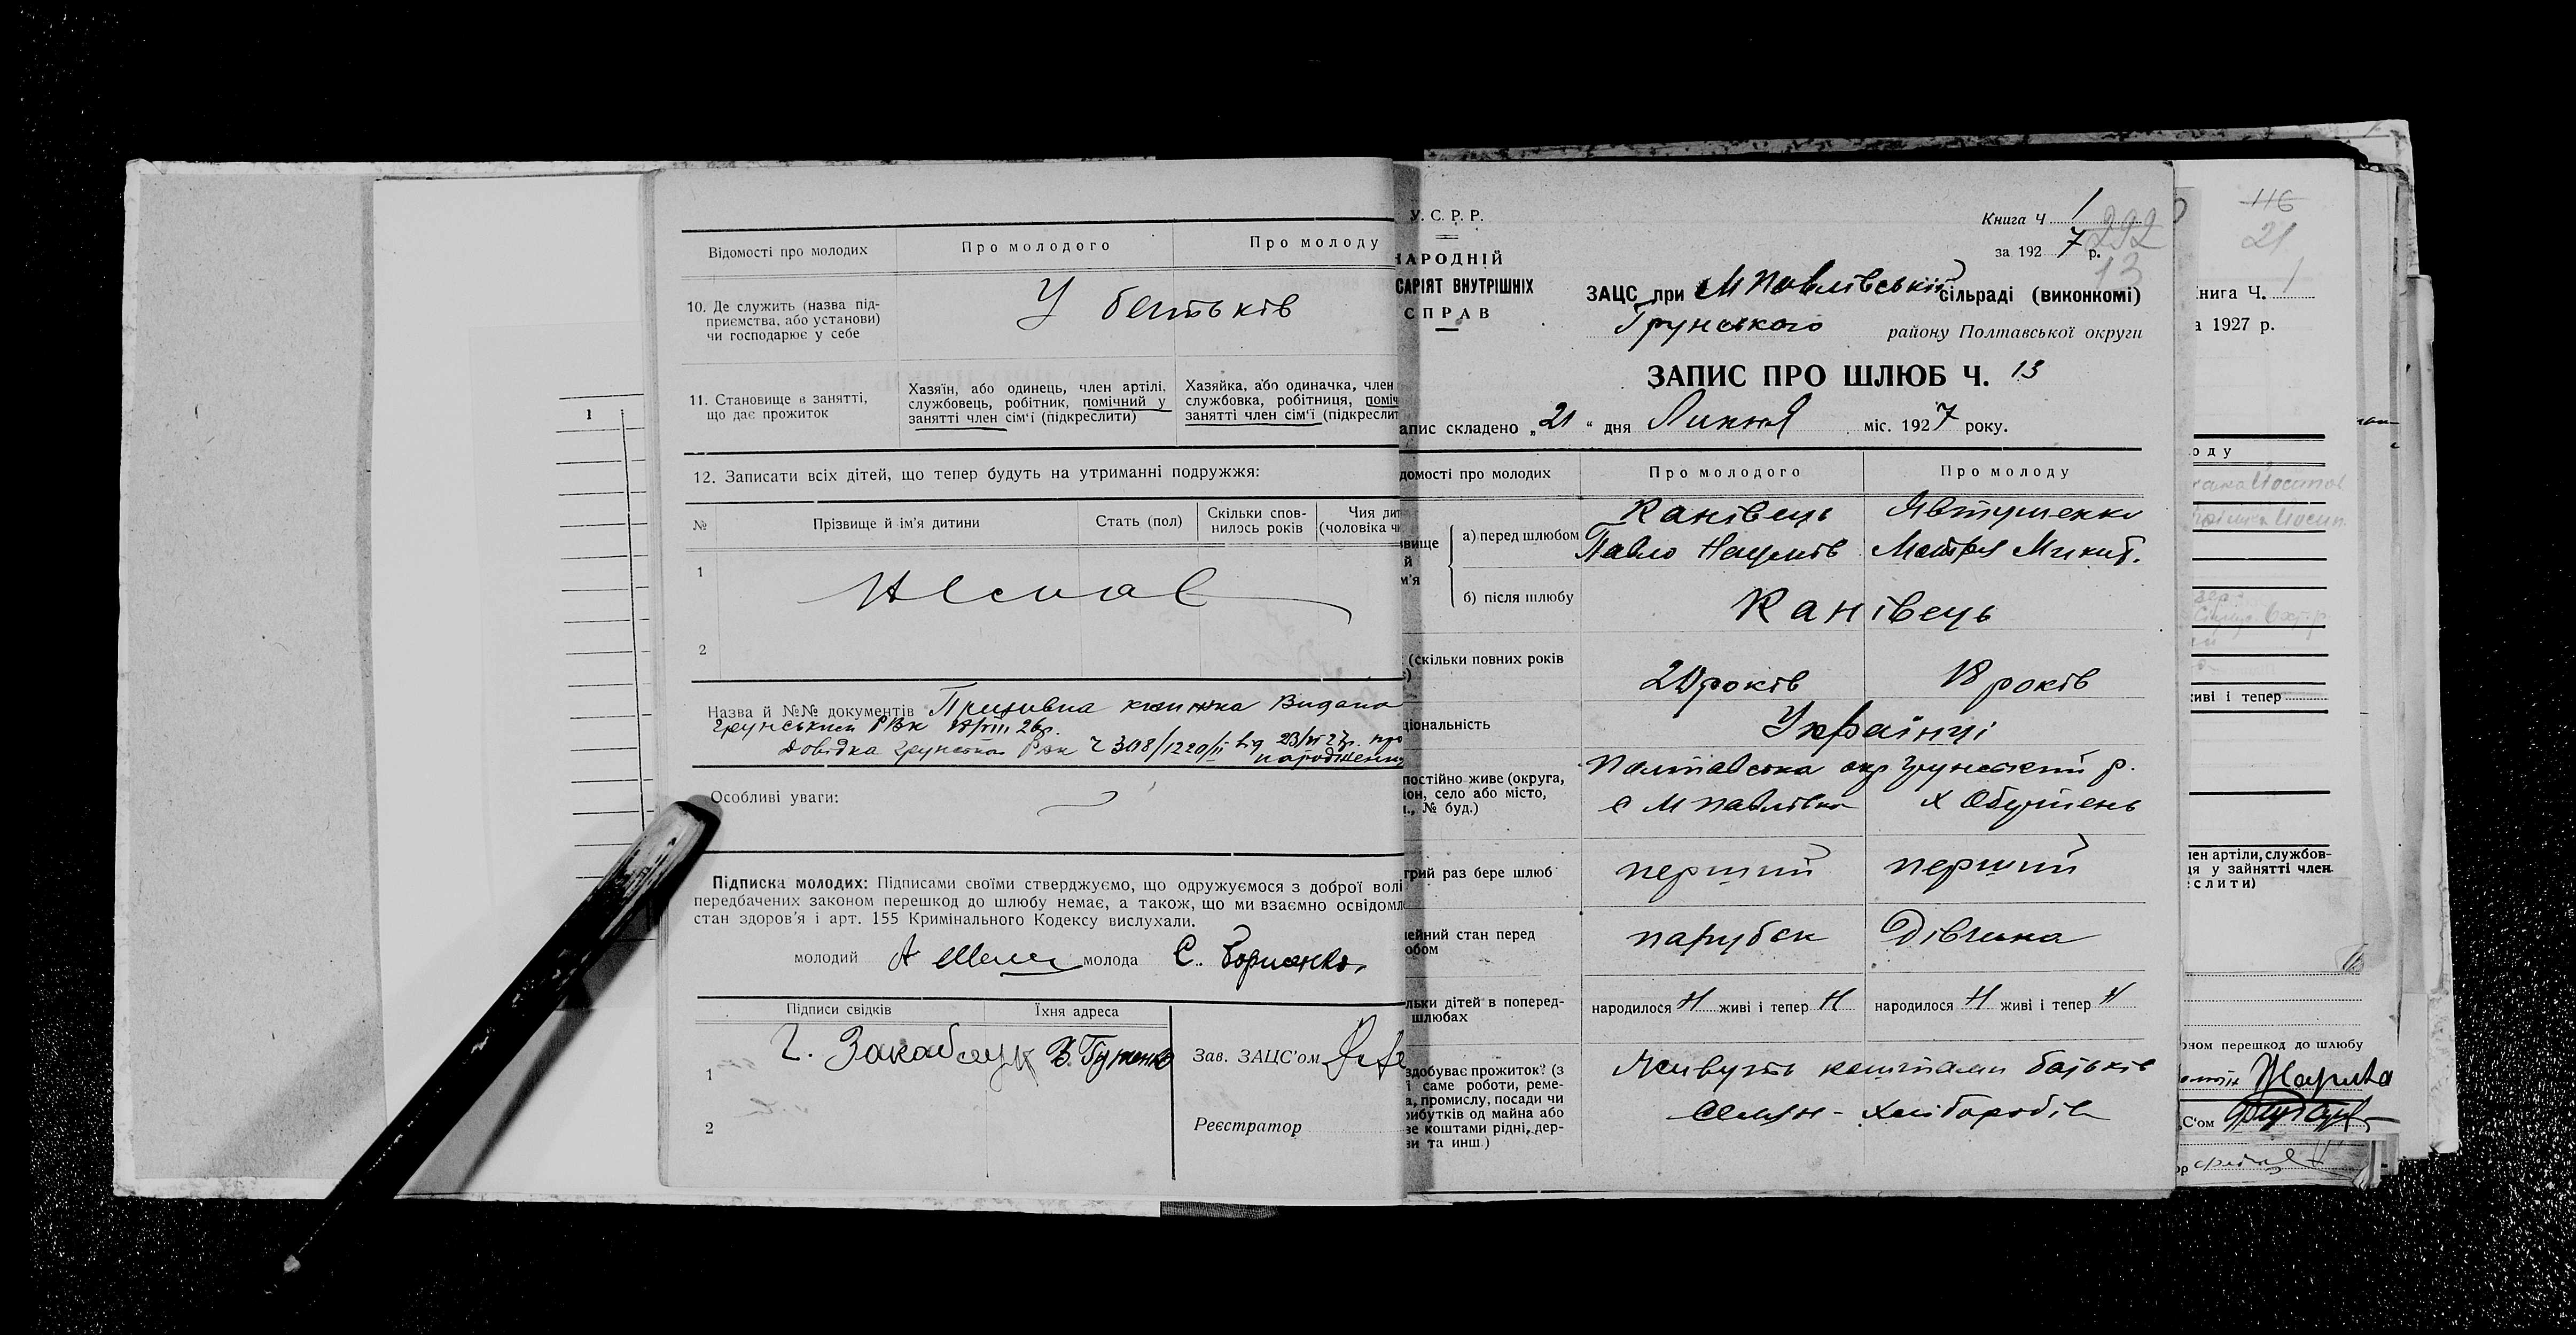 Відомості про молодих
Про молодого
Про молоду
10. Де служить (назва під-
приємства, або установи)
чи господарює у себе
У батьків
11. Становище в занятті,
що дає прожиток
Хазяїн, або одинець, член артілі,
службовець, робітник, помічний у
занятті член сім'ї (підкреслити)
Хазяйка, або одиначка, член
службовка, робітниця, поміч
занятті член сім'ї (підкреслит
12. Записати всіх дітей, що тепер будуть на утриманні подружжя:
№
Прізвище й ім'я дитини
Стать (пол)
Скільки спов-
нилось років
Чия дит
(чоловіка ч
1
Немає
2
Назва й №№ документів Призивна книжка Видана
Грунським РВК 26р.
Довідка РВК 308/1220/ від 23/VI 27р. про
народження
Особливі уваги:
Підписка молодих: Підписами своїми стверджуємо, що одружуємося з доброї волі
передбачених законом перешкод до шлюбу немає, а також, що ми взаємно освідомл
стан здоров'я і арт. 155 Кримінального Кодексу вислухали.
молодий А молода Є.
Підписи свідків
Їхня адреса
1
2
Зав. ЗАЦС'ом
Реєстратор
1
У. С. Р. Р.
НАРОДНІЙ
САРІЯТ ВНУТРІШНІХ
СПРАВ
Книга Ч 1
за 1927 р.
292
13
ЗАЦС при М Павлівській сільраді (виконкомі)
Грунського району Полтавської округи
ЗАПИС ПРО ШЛЮБ Ч. 13
апис складено „21“ дня Липня міс. 1927 року.
домості про молодих
Про молодого
Про молоду
вище
й
м'я
а) перед шлюбом
Канівець
Павло Наумів
Явтушенко
Мотря Микит.
б) після шлюбу
Канівець
(скільки повних років
20 років
18 років
ціональність
Українці
постійно живе (округа,
іон, село або місто,
, № буд.)
Полтавська окр Грунський р.
с М Павлівка
х Обушень
трий раз бере шлюб
перший
перший
ейний стан перед
обом
парубок
Дівчина
льки дітей в поперед-
шлюбах
народилося Н живі і тепер Н
народилося Н живі і тепер Н
здобуває прожиток? (з
ї саме роботи, реме-
а, промислу, посади чи
рибутків од майна або
ве коштами рідні, дер-
ви та инш.)
Живуть коштами батьків
селян - хліборобів
116
21
нига Ч. 1
а 1927 р.
оду
живі і тепер
лен артіли, службов-
ця у зайнятті член
еслити)
оном перешкод до шлюбу
С'ом